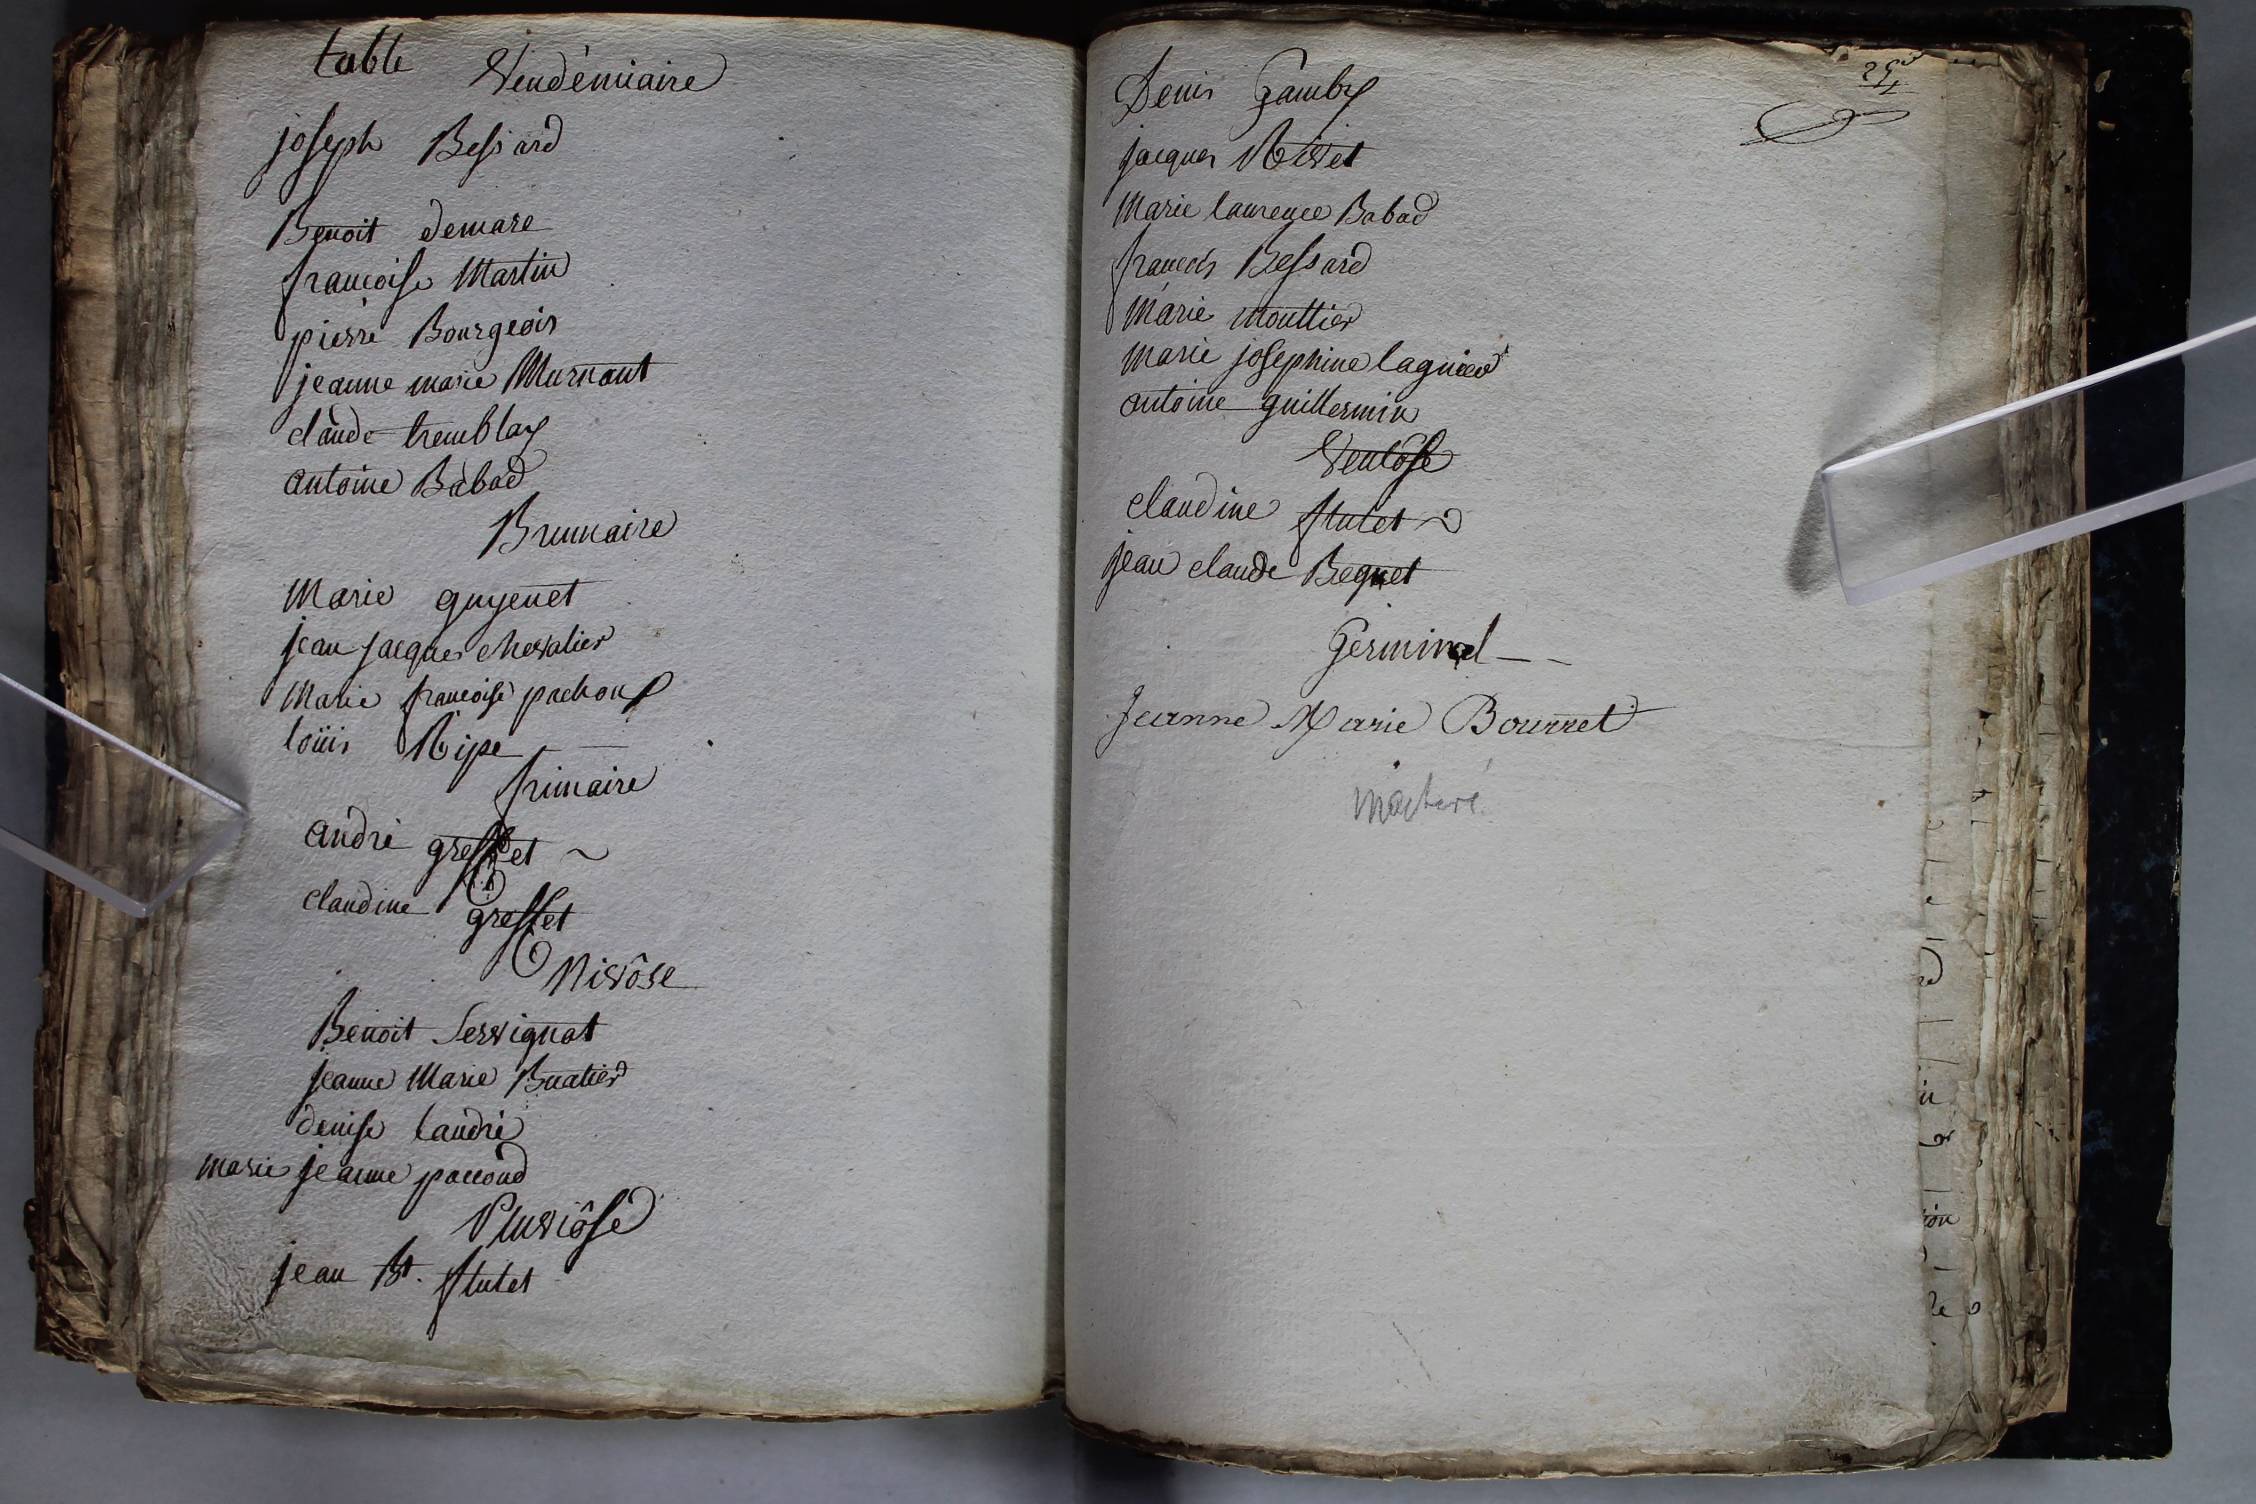 table Vendémiaire
joseph Bessard
Benoit demare
francoise Martin
pierre Bourgeois
jeanne marie Murnant
claude tremblay
antoine Babad
Brumaire
Marie guyenet
jean jacques chevalier
Marie francoise pachoux
loüis Ripe
frimaire
andré greffet
claudine greffet
Nivôse
Benoit Servignat
jeanne Marie Buatier
denise landré
marie jeanne paccoud
Pluviôse
jean Bt. flutet
Denis Gamby
jacques Rivet
Marie laurence Babad
francois Bessard
Marie mouttier
Marie josephine lagnier
antoine guillermin
Ventôse
claudine flutet
jean claude Bequet
Germinal
Jeanne Marie Bourret